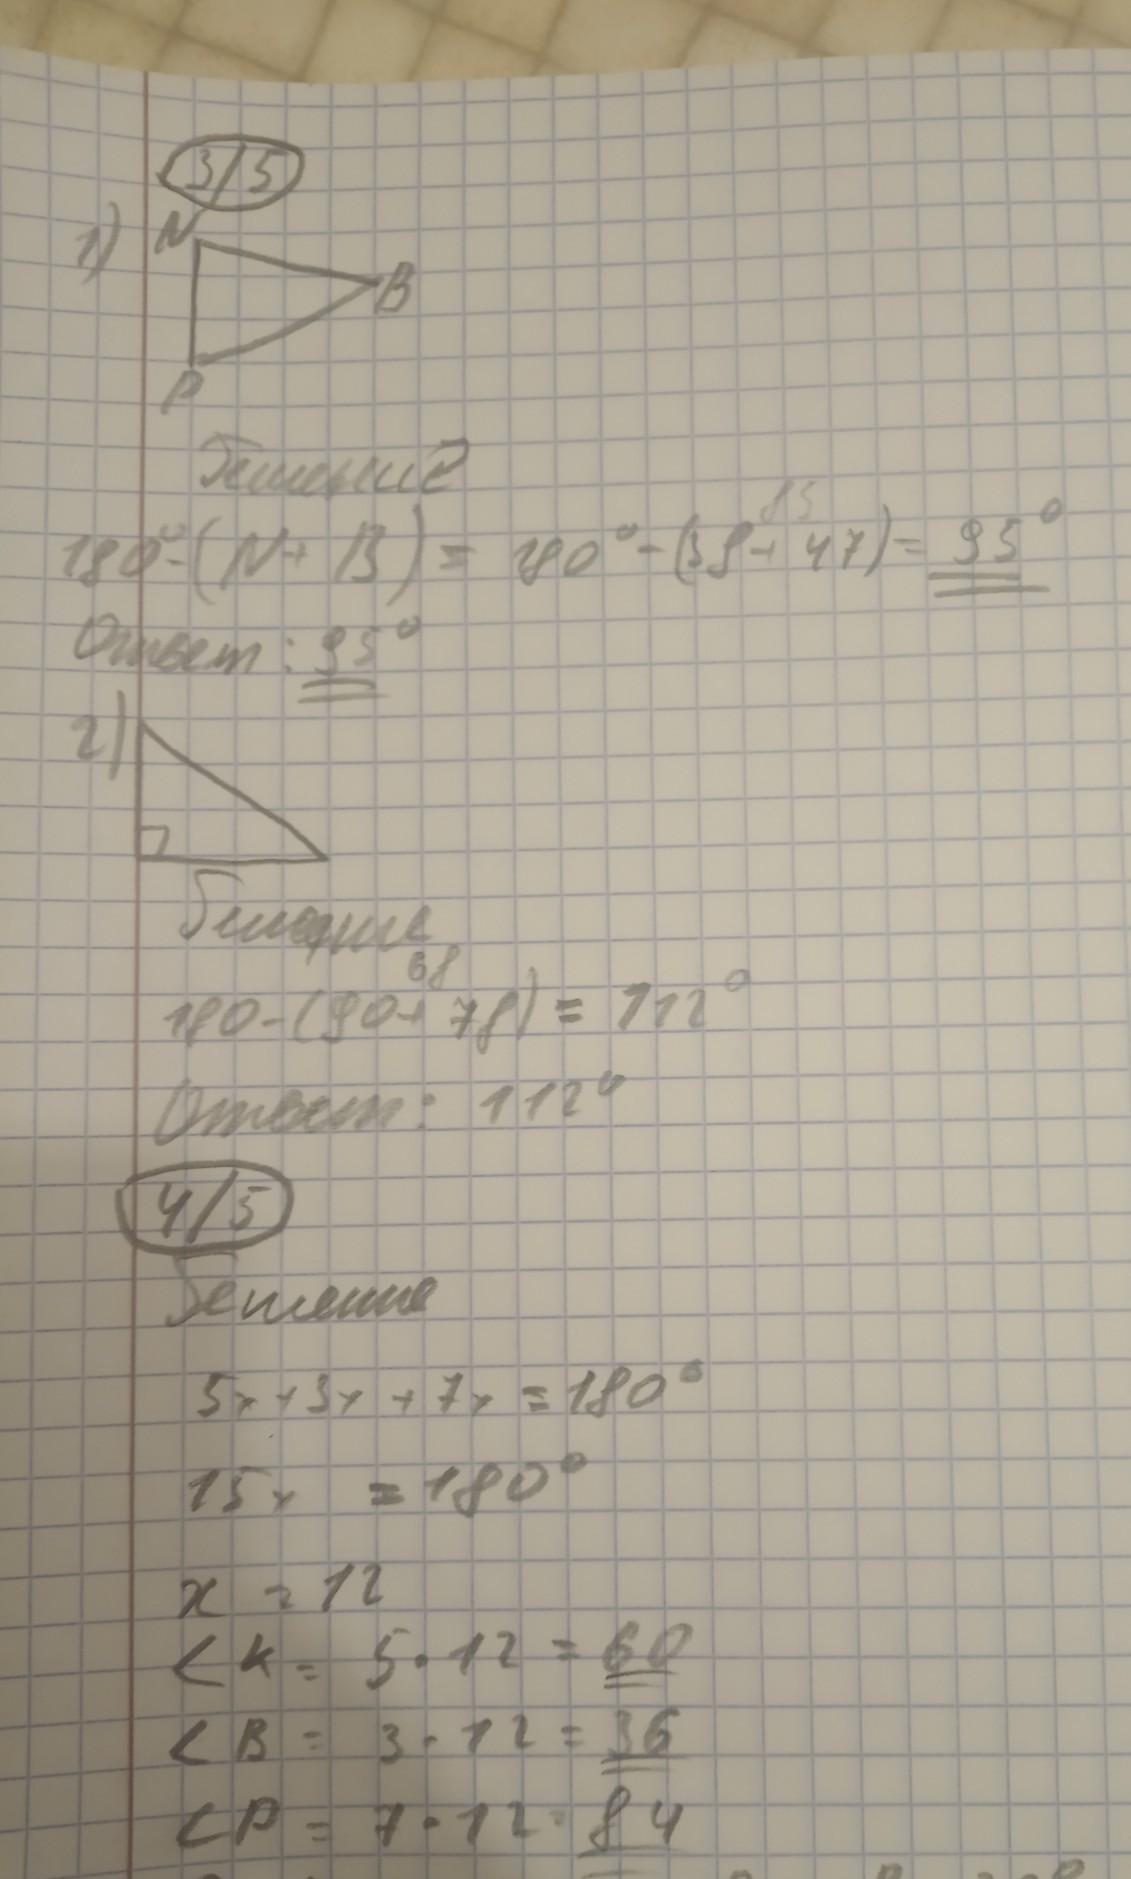 3/5
1) N
B
P
Решение
85
180°-(N+B)= 180°-(38+47)= 95°
Ответ: 95°
2)
Решение
68
180-(90+78)= 112°
Ответ: 112°
4/5
Решение
5x+3x+7x=180°
15x =180°
x = 12
∠K= 5·12=60
∠B= 3·12=36
∠P= 7·12=84